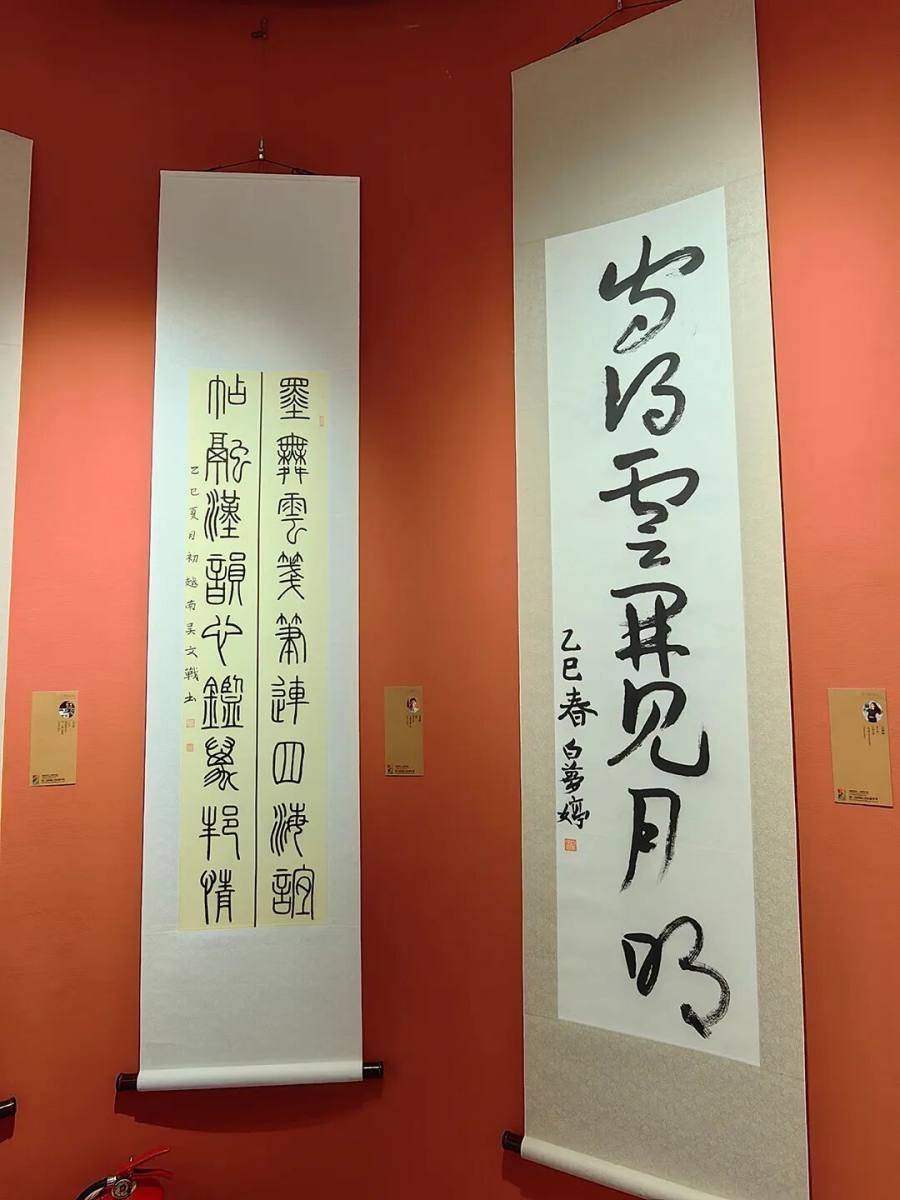 守得雲開見月明
乙巳春 白夢婷
墨舞雲箋筆連四海誼
帖融漢韻心鑑萬邦情
乙巳夏月初越南吴文戰书